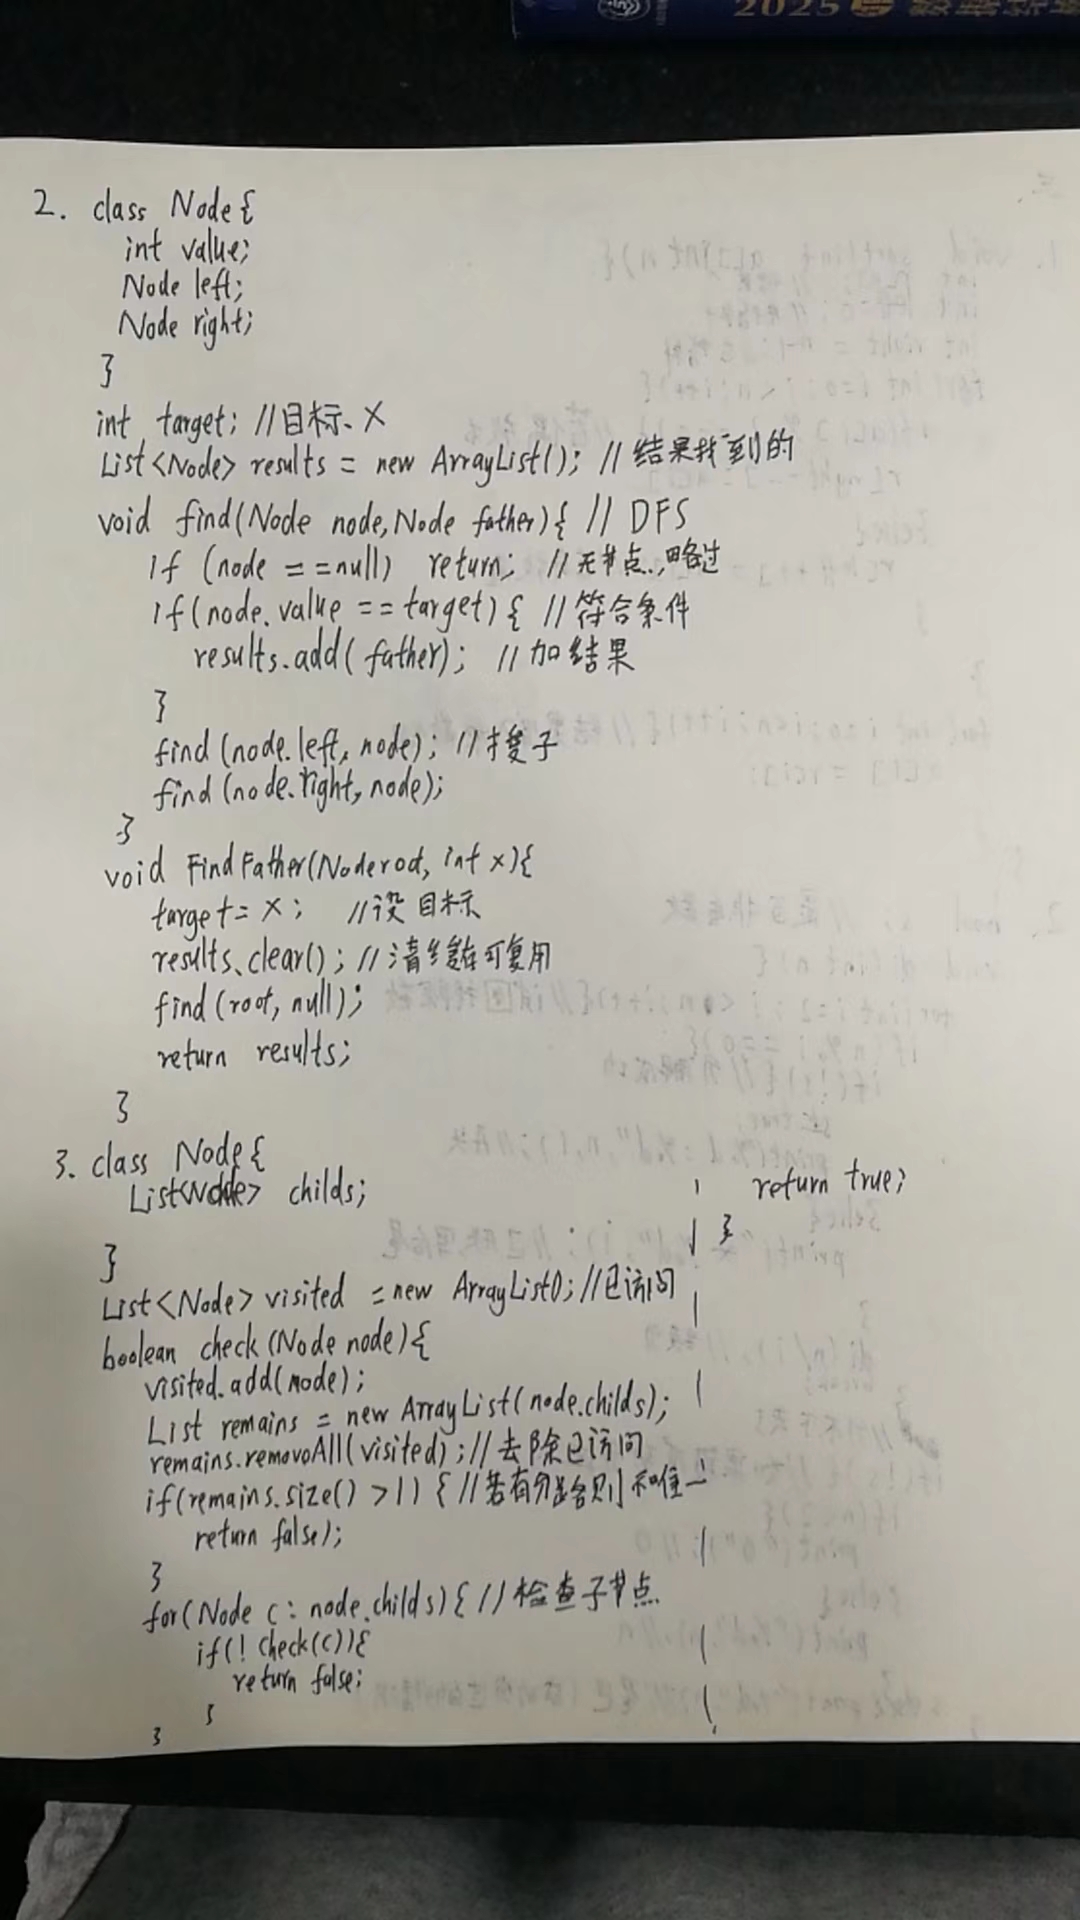 2025
2. class Node{
int value;
Node left;
Node right;
}
int target; //目标、X
List<Node> results = new ArrayList(); //结果找到的
void find(Node node, Node father){ // DFS
if (node ==null) return; //无节点,略过
if(node.value == target) { //符合条件
results.add( father); //加结果
}
find (node.left, node); //搜子
find (node.right, node);
}
void FindFather(Node root, int x){
target= X; //设目标
results.clear(); //清 可复用
find (root, null);
return results;
}
3. class Node{
List<Node> childs;
}
List<Node> visited = new ArrayList(); //已访问
boolean check (Node node){
visited.add(node);
List remains = new ArrayList(node.childs);
remains.removoAll(visited); //去除已访问
if(remains.size() >1) { //若有 则 唯一
return false);
}
for(Node c : node.childs) { //检查子节点
if(! check(c)){
return false;
}
}
return true;
}